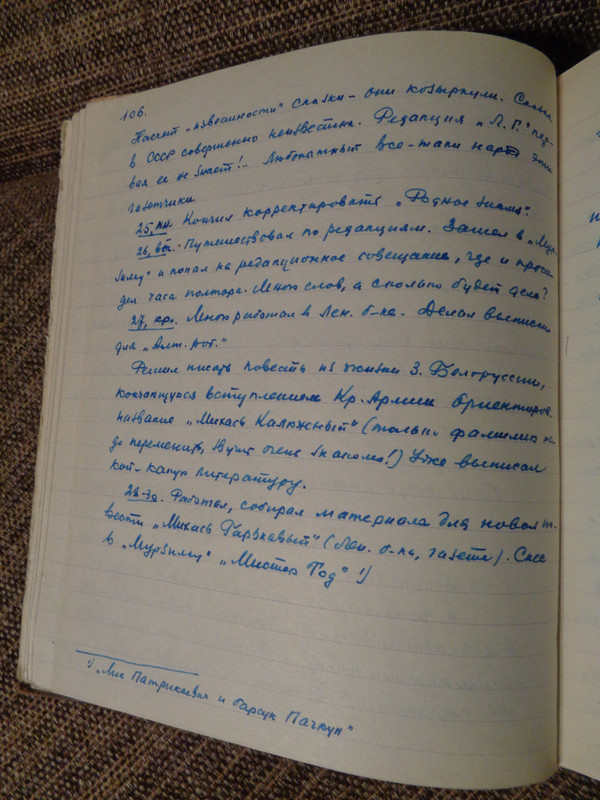 106.
Насчет „известности" сказки – они козырнули. Сказка
в СССР совершенно неизвестна. Редакция „Л.Г." пер-
вая ее не знает!.. Любопытный все-таки народ эти
газетчики.
25, пн. Кончил корректировать „Родное знамя".
26, вт. – Путешествовал по редакциям. Зашел в „Мур-
зилку" и попал на редакционное совещание, где и проси-
дел часа полтора. Много слов, а сколько будет дела?
27, ср. Много работал в Лен. б-ке. Делал выписки
для „Алт. роб."
Решил писать повесть из жизни З. Белоруссии,
кончающуюся вступлением Кр. Армии. Ориентиров.
название „Михась Калюжный" (только фамилию на-
до переменить, звучит очень знакомо!) Уже выписал
кой-какую литературу.
28-го. Работал, собирал материал для новой по-
вести „Михась Гарькавый" (Лен. б-ка, газеты). Снес
в „Мурзилку" „Мистер Тод" ¹)
¹) „Лис Патрикеевич и барсук Пачкун"